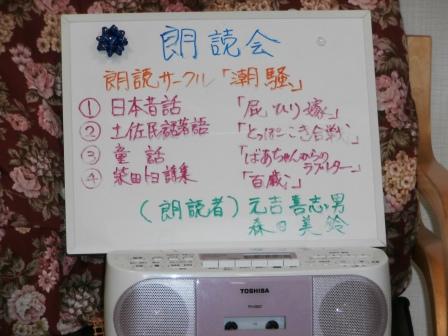 朗読会
朗読サークル「潮騒」
① 日本昔話 「屁ひり嫁」
② 土佐民話落語 「とっぽこき合戦」
③ 童話 「ばあちゃんからのラブレター」
④ 柴田トヨ詩集 「百歳」
(朗読者) 元吉喜志男
森田美鈴
TOSHIBA